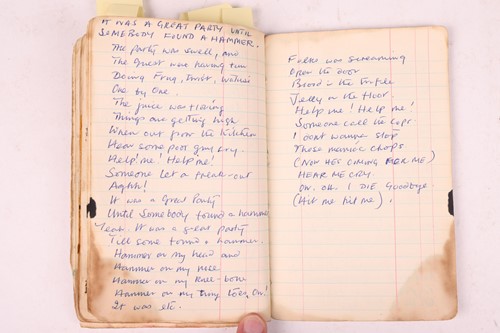 IT WAS A GREAT PARTY UNTIL
SOMEBODY FOUND A HAMMER.
The Party was swell, and
The Guest were having fun
Doing Frug, Twist, Watusi
One by One.
The juice was flowing
Things are getting high
When out from the Kitchen
Hear some poor guy cry.
Help me! Help me!
Someone let a freak-out
Aghhh!
It was a Great Party
Until Somebody found a hammer
Yeah. It was a great party
Till some found a hammer.
Hammer on my head and
Hammer on my nose
Hammer on my knee-bone
Hammer on my tiny toes, On!
It was etc.
Folks was screaming
Open the door
Blood in the
Jelly on the floor.
Help me! Help me!
Someone call the cops.
I dont wanna stop
Those maniac chops
(NOW HES COMING FOR ME)
HEAR ME CRY
OH. OH. I DIE Goodbye.
(Hit me hit me).